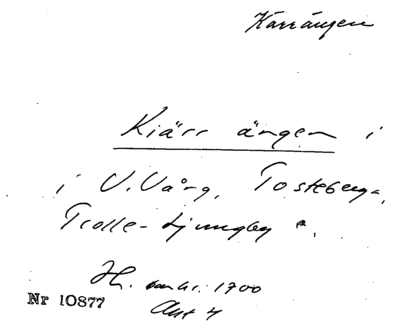 Kärrängen
Kiärr ängen i
i V. Vång, Tosteberga,
Trolle-Ljungby
H. omkr. 1700
Akt 4
Nr 10877